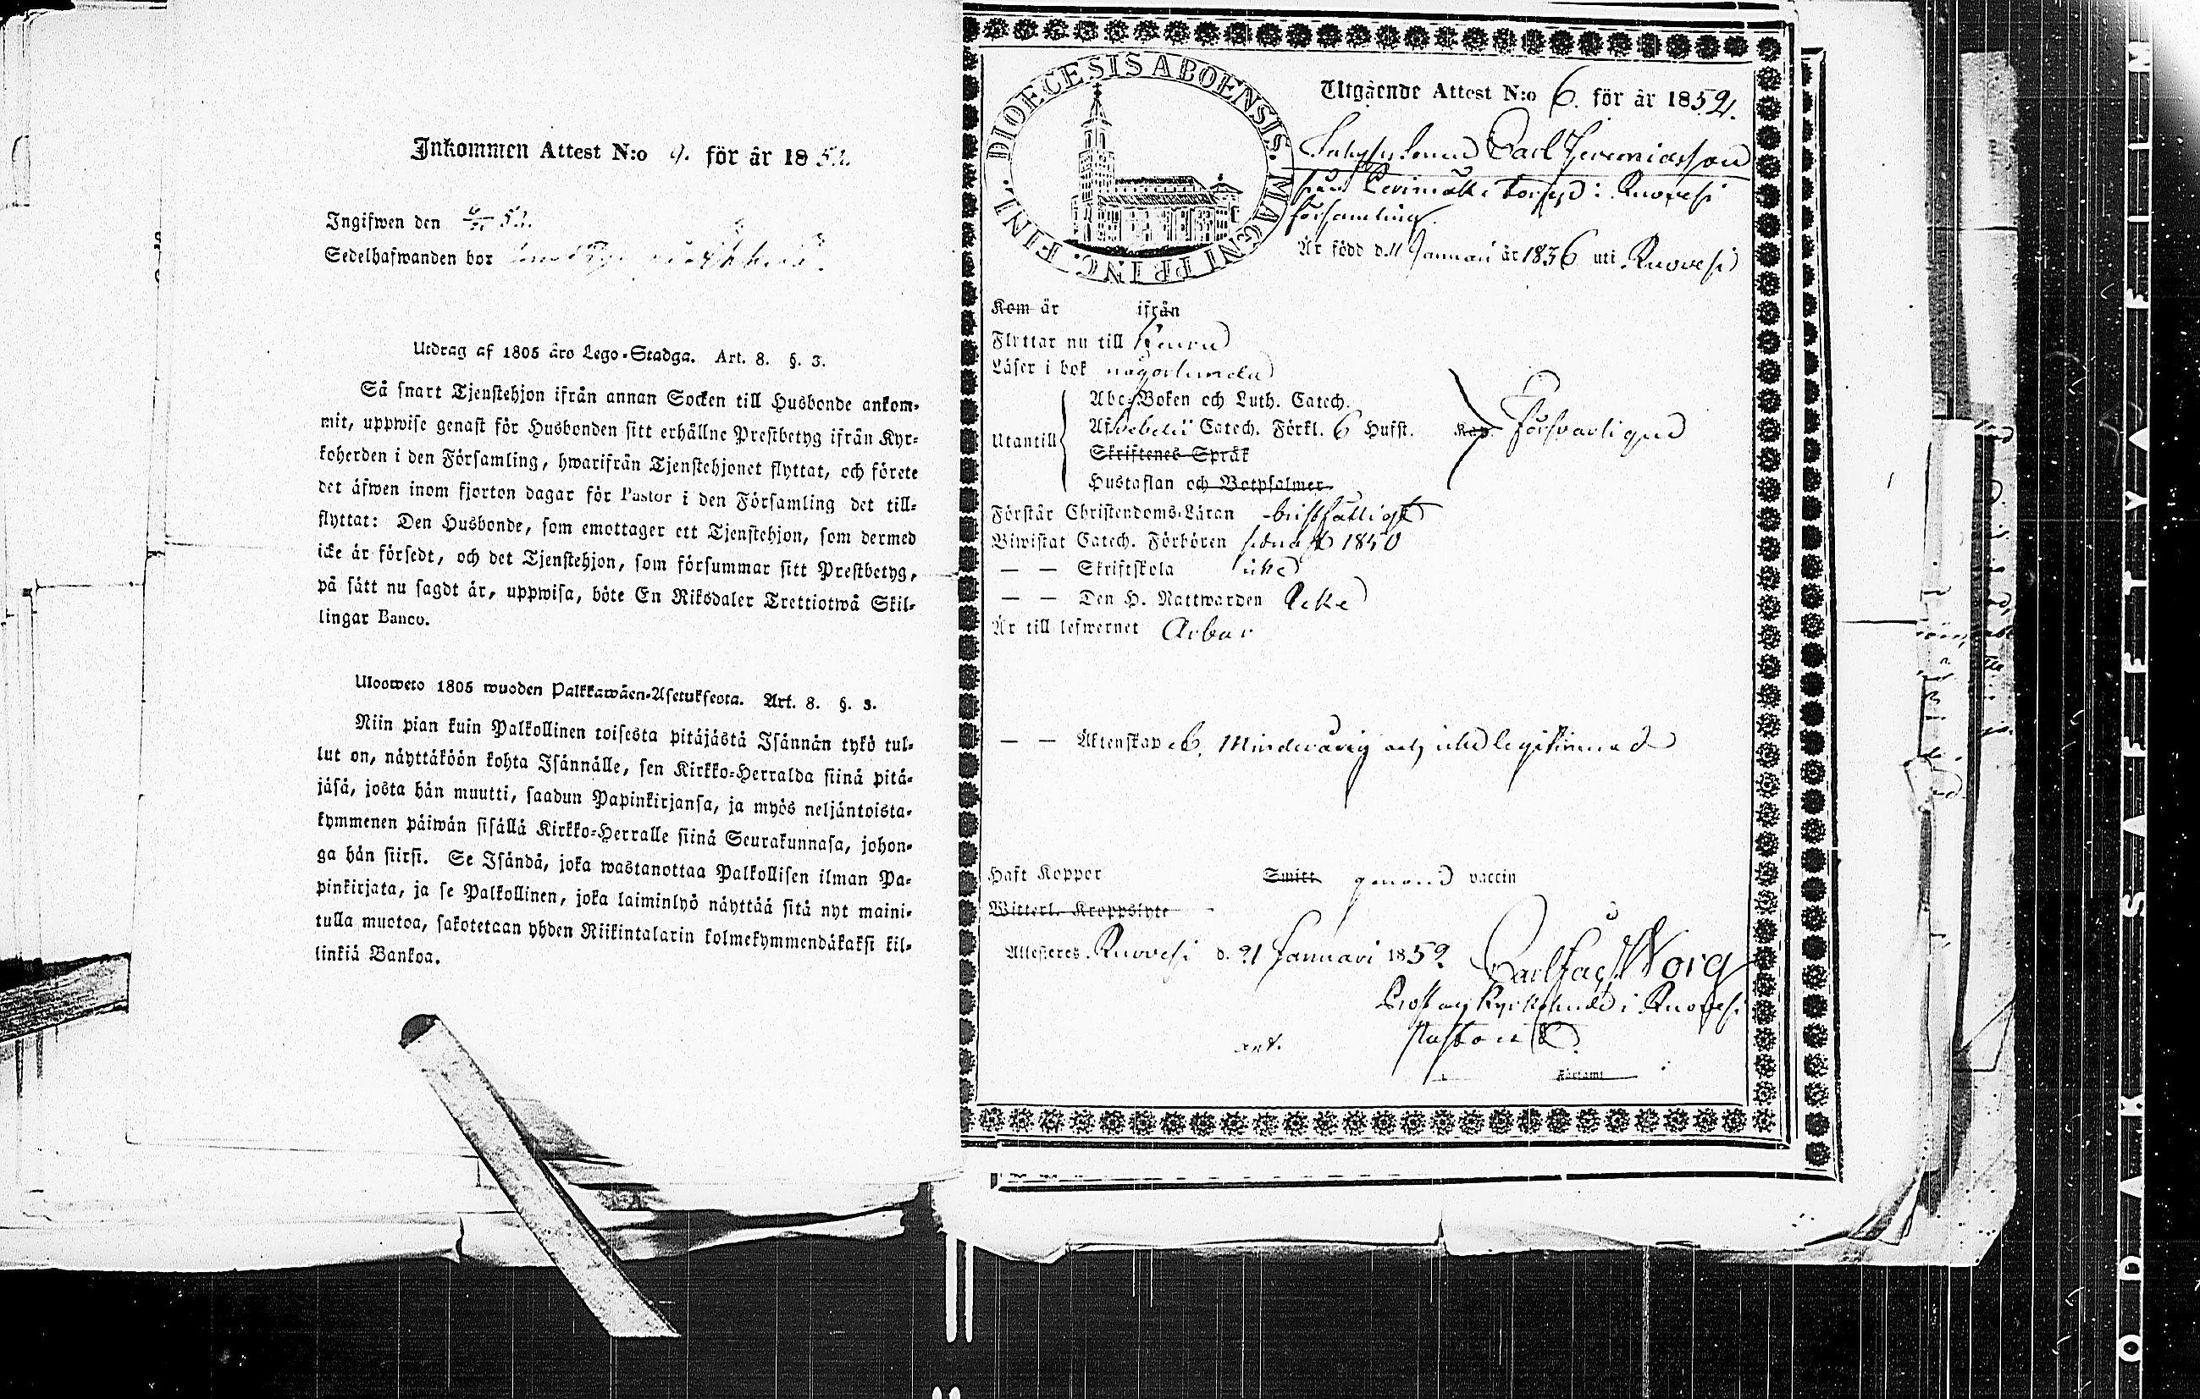 Inkommen Attest N:o 9. för år 1852.
Ingifwen den 52.
Sedelhafwanden bor
Utdrag af 1805 års Lego-Stadga. Art. 8. §. 3.
Så snart Tjenstehjon ifrån annan Socken till Husbonde ankom-
mit, uppwise genast för Husbonden sitt erhållne Prestbetyg ifrån Kyr-
koherden i den Församling, hwarifrån Tjenstehjonet flyttat, och förete
det äfwen inom fjorton dagar för Pastor i den Församling det till-
flyttat: Den Husbonde, som emottager ett Tjenstehjon, som dermed
icke är försedt, och det Tjenstehjon, som försummar sitt Prestbetyg,
på sätt nu sagdt är, uppwisa, böte En Riksdaler Trettiotwå Skil-
lingar Banco.
Ulosweto 1805 wuoden Palkkawäen-Asetuksesta. Art. 8. §. 3.
Niin pian kuin Palkollinen toisesta pitäjästä Isännän tykö tul-
lut on, näyttäköön kohta Isännälle, sen Kirkko-Herralda siinä pitä-
jäsä, josta hän muutti, saadun Papinkirjansa, ja myös neljäntoista-
kymmenen päiwän sisällä Kirkko-Herralle siinä Seurakunnasa, johon-
ga hän siirsi. Se Isändä, joka wastanottaa Palkollisen ilman Pa-
pinkirjata, ja se Palkollinen, joka laiminlyö näyttää sitä nyt maini-
tulla muotoa, sakotetaan yhden Riikintalarin kolmekymmendäkaksi kil-
linkiä Bankoa.
DIOECESIS ABOENSIS. MAGNI PRINC. FINL.
Utgående Attest N:o 6. för år 1852.
Carl Jeremiasson
från torp i Ruovesi
församling.
Är född d. 11 Januari år 1836 uti Ruovesi
Kom år ifrån
Flyttar nu till Keuru
Läser i bok någorlunda
Utantill
Abc-Boken och Luth. Catech.
Catech. Förkl. 6 Hufst.
Skriftenes Språk
Hustaflan och Botpsalmer.
Kap. Försvarligen
Förstår Christendoms-Läran bristfälligt
Biwistat Catech. Förhören sednast 1850
— — Skriftskola icke
— — Den H. Nattwarden Icke
Är till lefwernet Ärbar
— — Äktenskapet, Minderårig och icke legitimerad
Haft Koppor Smitt genom vaccin
Witterl. Kroppslyte
Attesteras. Ruovesi d. 21 Januari 1852
Carl Jac. Norg
Prost och Kyrkoherde i Ruovesi
Pastorat
Församl
KODAK SAFETY FILM